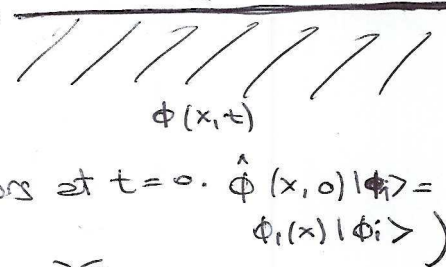 ϕ(x,t)
ors at t=0. ϕ̂(x,0)|ϕi> =
ϕ₁(x)|ϕi> )